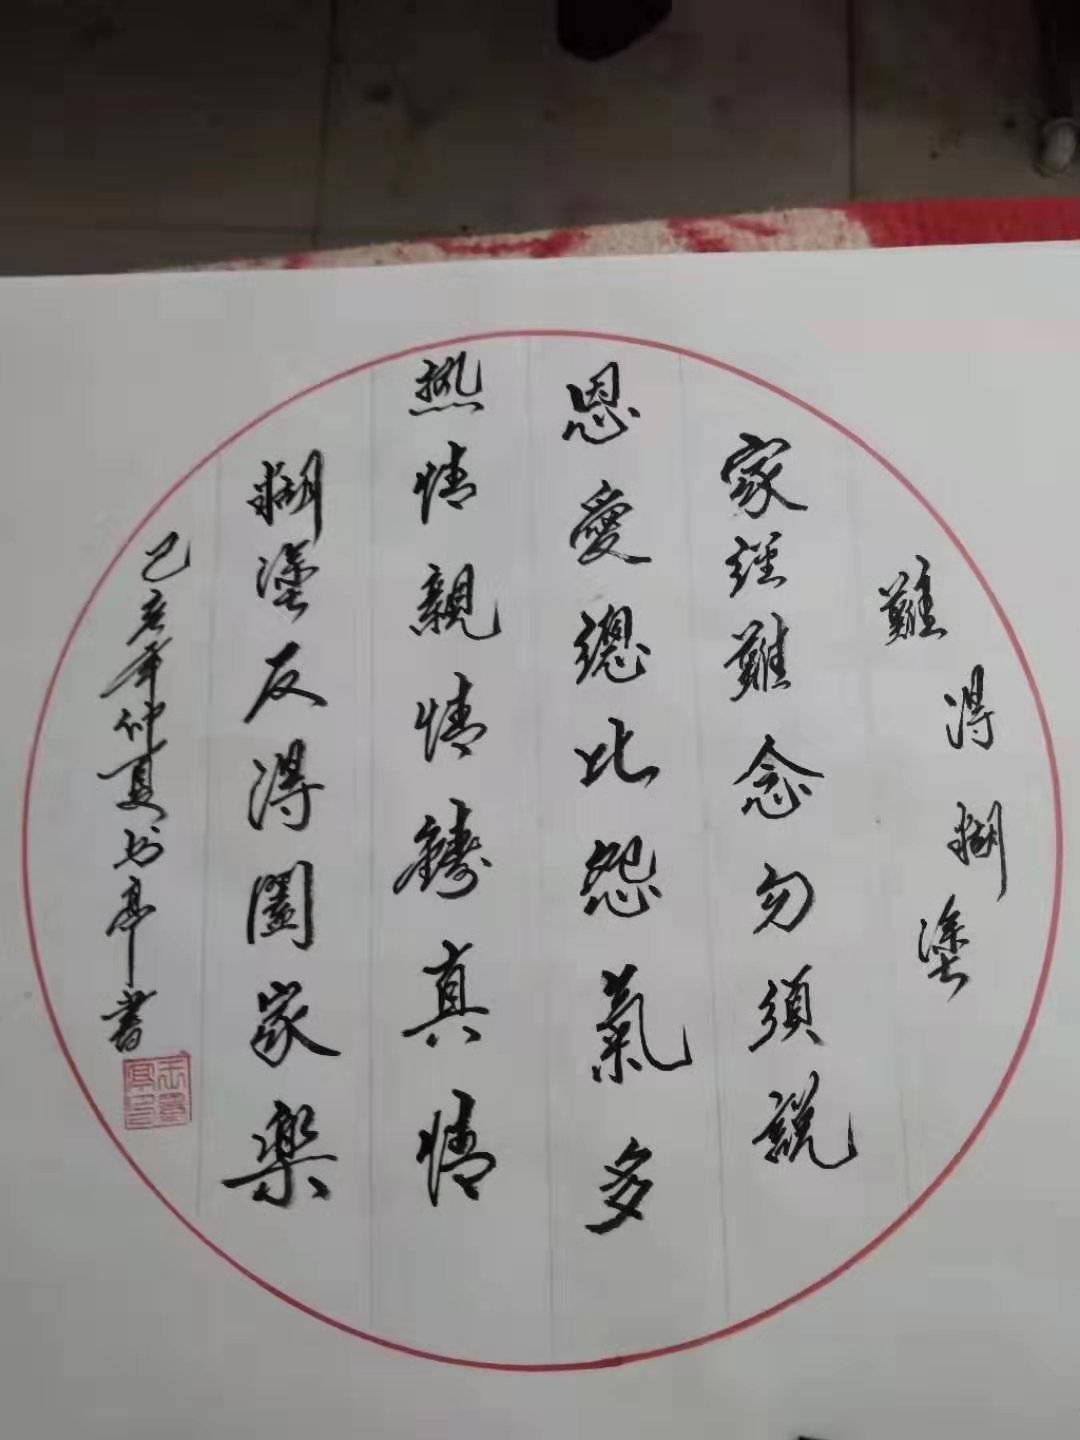 難得糊塗
家經難念勿須說
恩愛總比怨氣多
熱情親情鑄真情
糊塗反得闔家樂
己亥年仲夏書亭書